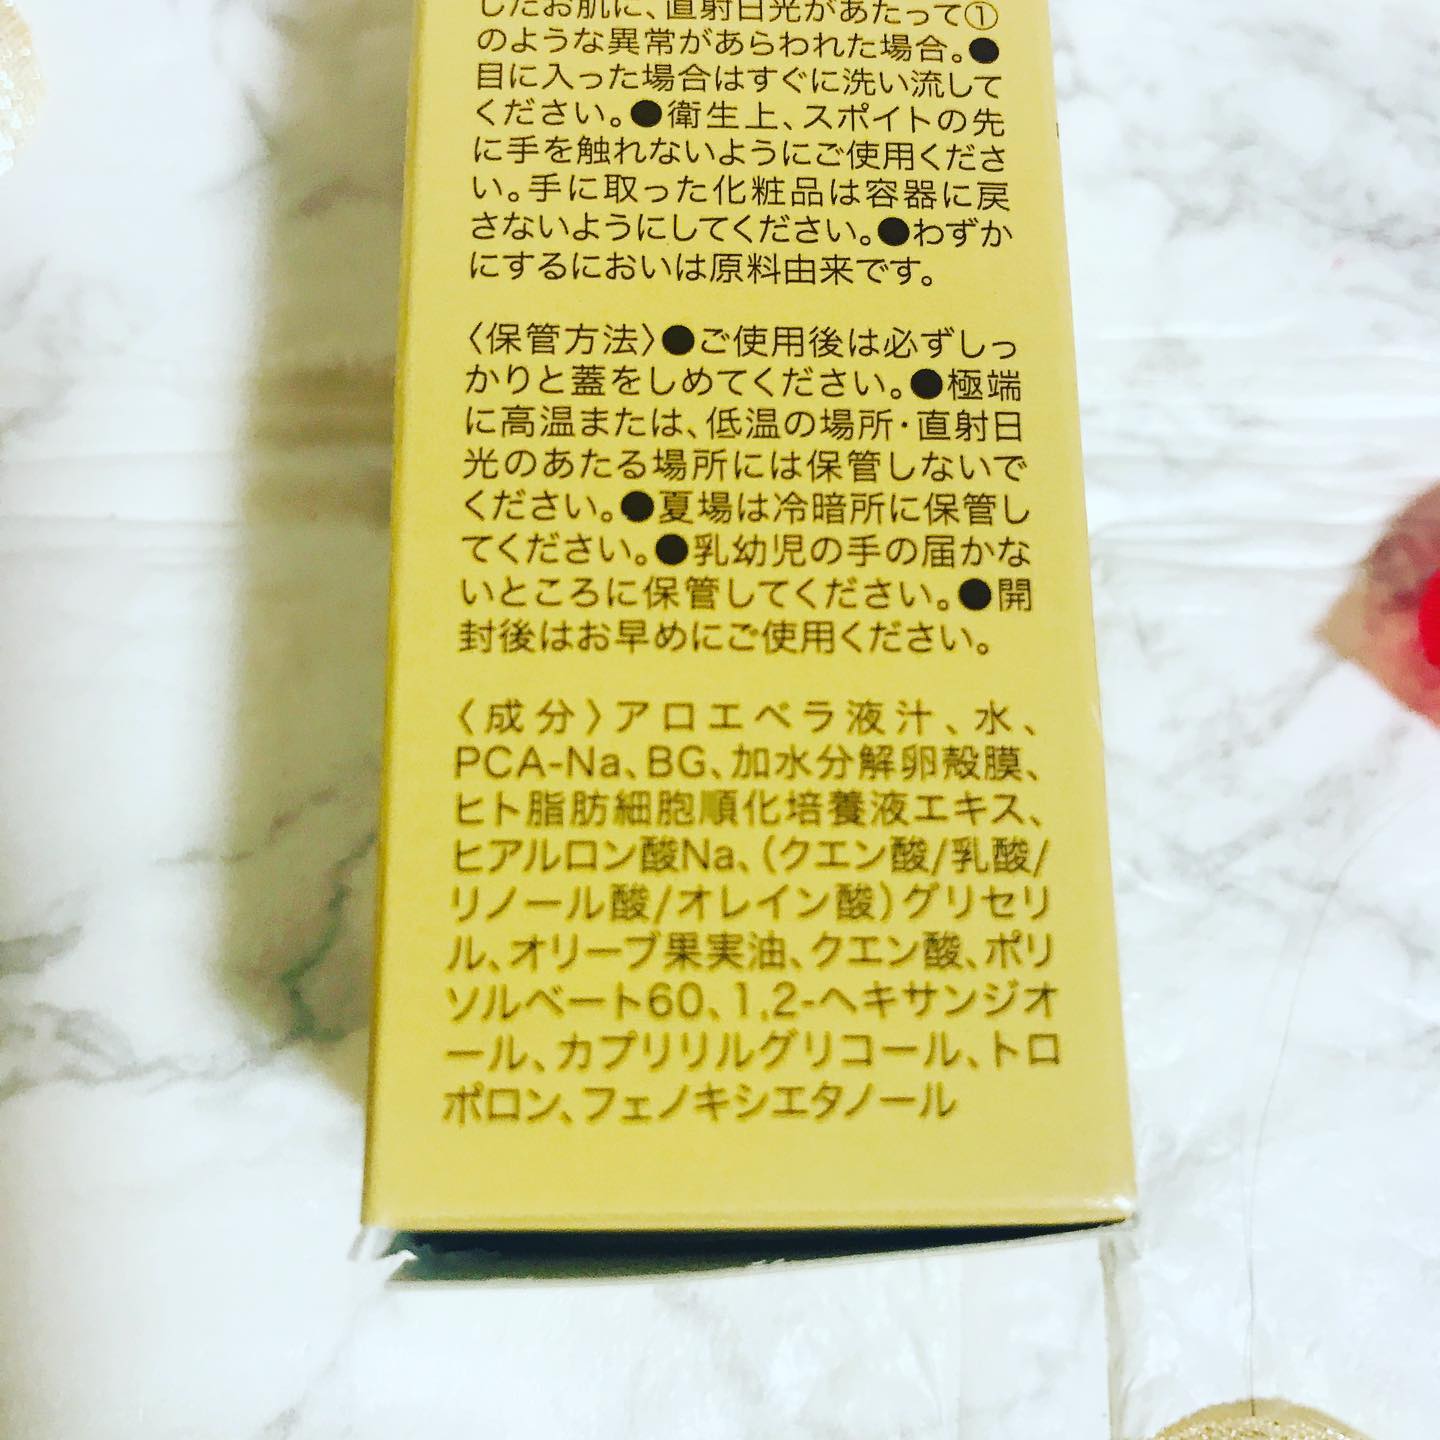 したお肌に、直射日光があたって①
のような異常があらわれた場合。●
目に入った場合はすぐに洗い流して
ください。●衛生上、スポイトの先
に手を触れないようにご使用くださ
い。手に取った化粧品は容器に戻
さないようにしてください。●わずか
にするにおいは原料由来です。
〈保管方法〉●ご使用後は必ずしっ
かりと蓋をしめてください。●極端
に高温または、低温の場所・直射日
光のあたる場所には保管しないで
ください。●夏場は冷暗所に保管し
てください。●乳幼児の手の届かな
いところに保管してください。●開
封後はお早めにご使用ください。
〈成分〉アロエベラ液汁、水、
PCA-Na、BG、加水分解卵殻膜、
ヒト脂肪細胞順化培養液エキス、
ヒアルロン酸Na、(クエン酸/乳酸/
リノール酸/オレイン酸)グリセリ
ル、オリーブ果実油、クエン酸、ポリ
ソルベート60、1,2-ヘキサンジオ
ール、カプリリルグリコール、トロ
ポロン、フェノキシエタノール